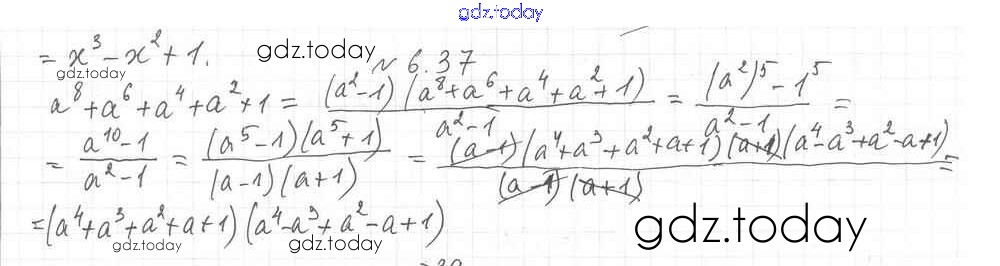 gdz.today
= x³ - x² + 1.
gdz.today
gdz.today
№ 6.37
a⁸ + a⁶ + a⁴ + a² + 1 = (a² - 1)(a⁸ + a⁶ + a⁴ + a² + 1) / (a² - 1) = ((a²)⁵ - 1⁵) / (a² - 1) =
= (a¹⁰ - 1) / (a² - 1) = (a⁵ - 1)(a⁵ + 1) / (a - 1)(a + 1) = (a - 1)(a⁴ + a³ + a² + a + 1)(a + 1)(a⁴ - a³ + a² - a + 1) / (a - 1)(a + 1) =
= (a⁴ + a³ + a² + a + 1)(a⁴ - a³ + a² - a + 1)
gdz.today
gdz.today
gdz.today